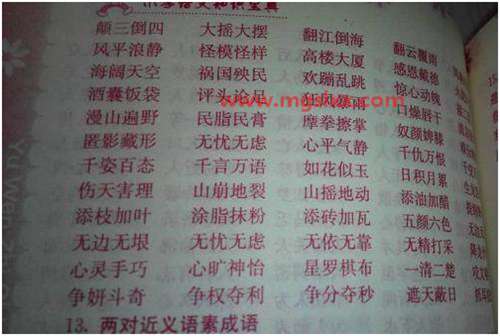 小学语文知识宝典
颠三倒四 大摇大摆 翻江倒海 翻云覆雨
风平浪静 怪模怪样 高楼大厦 感恩戴德
海阔天空 祸国殃民 欢蹦乱跳 惊心动魄
酒囊饭袋 评头论足 口燥唇干
www.mgsha.com
漫山遍野 民脂民膏 摩拳擦掌 奴颜婢膝
匿影藏形 无忧无虑 心平气静 千仇万恨
千姿百态 千言万语 如花似玉 日积月累
伤天害理 山崩地裂 山摇地动 添油加醋
添枝加叶 涂脂抹粉 添砖加瓦 五颜六色
无边无垠 无忧无虑 无依无靠 无精打采
心灵手巧 心旷神怡 星罗棋布 一清二楚
争妍斗奇 争权夺利 争分夺秒 遮天蔽日
13. 两对近义语素成语